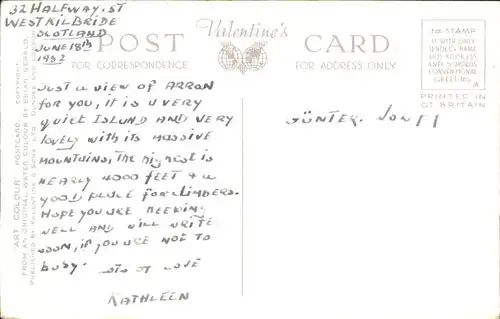 32 HALFWAY. ST
WEST KILBRIDE
SCOTLAND
JUNE 18th
1952
POST
FOR CORRESPONDENCE
Valentine's
CARD
FOR ADDRESS ONLY
1d. STAMP
IF WITH ONLY
SENDER'S NAME
AND ADDRESS
AND 5 WORDS
CONVENTIONAL
GREETING.
A
PRINTED IN
GT BRITAIN
JUST A VIEW OF ARRAN
FOR YOU, IT IS A VERY
QUIET ISLAND AND VERY
LOVELY WITH ITS MASSIVE
MOUNTAINS, THE HIGHEST IS
NEARLY 4000 FEET & A
GOOD PLACE FOR CLIMBERS.
HOPE YOU ARE KEEPING
WELL AND WILL WRITE
SOON, IF YOU ARE NOT TO
BUSY. LOTS OF LOVE
KATHLEEN
GÜNTER.
"ART COLOUR" POSTCARD. COPYRIGHT
FROM AN ORIGINAL WATER COLOUR BY BRIAN GERALD.
PUBLISHED BY VALENTINE & SONS LTD. DUNDEE AND